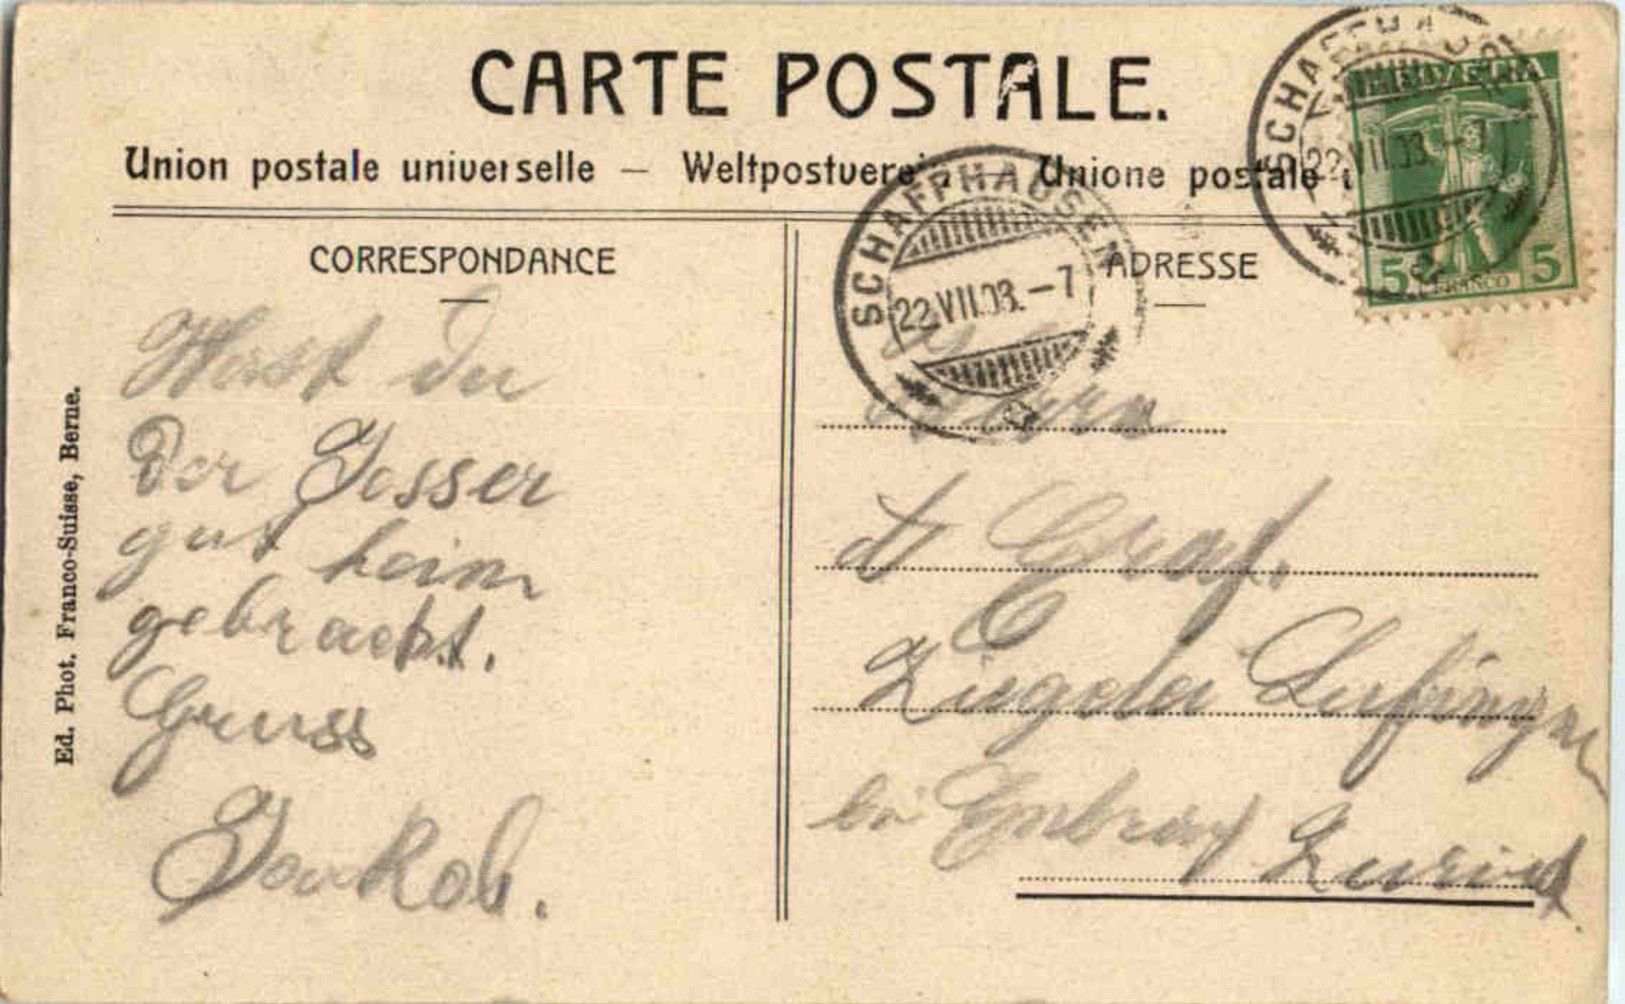 CARTE POSTALE.
Union postale universelle — Weltpostverei — Unione postale
CORRESPONDANCE
ADRESSE
SCHAFFHAUSEN
22.VII.08.–7
SCHAFFHAUS
22.VII.08
HELVETIA
5 FRANCO 5
Hast du
Der
gut heim
gebracht.
Gruss
Jakob.
Herrn
Graf.
Ziegelei Lufingen
bei Embrach Zürich
Ed. Phot. Franco-Suisse, Berne.